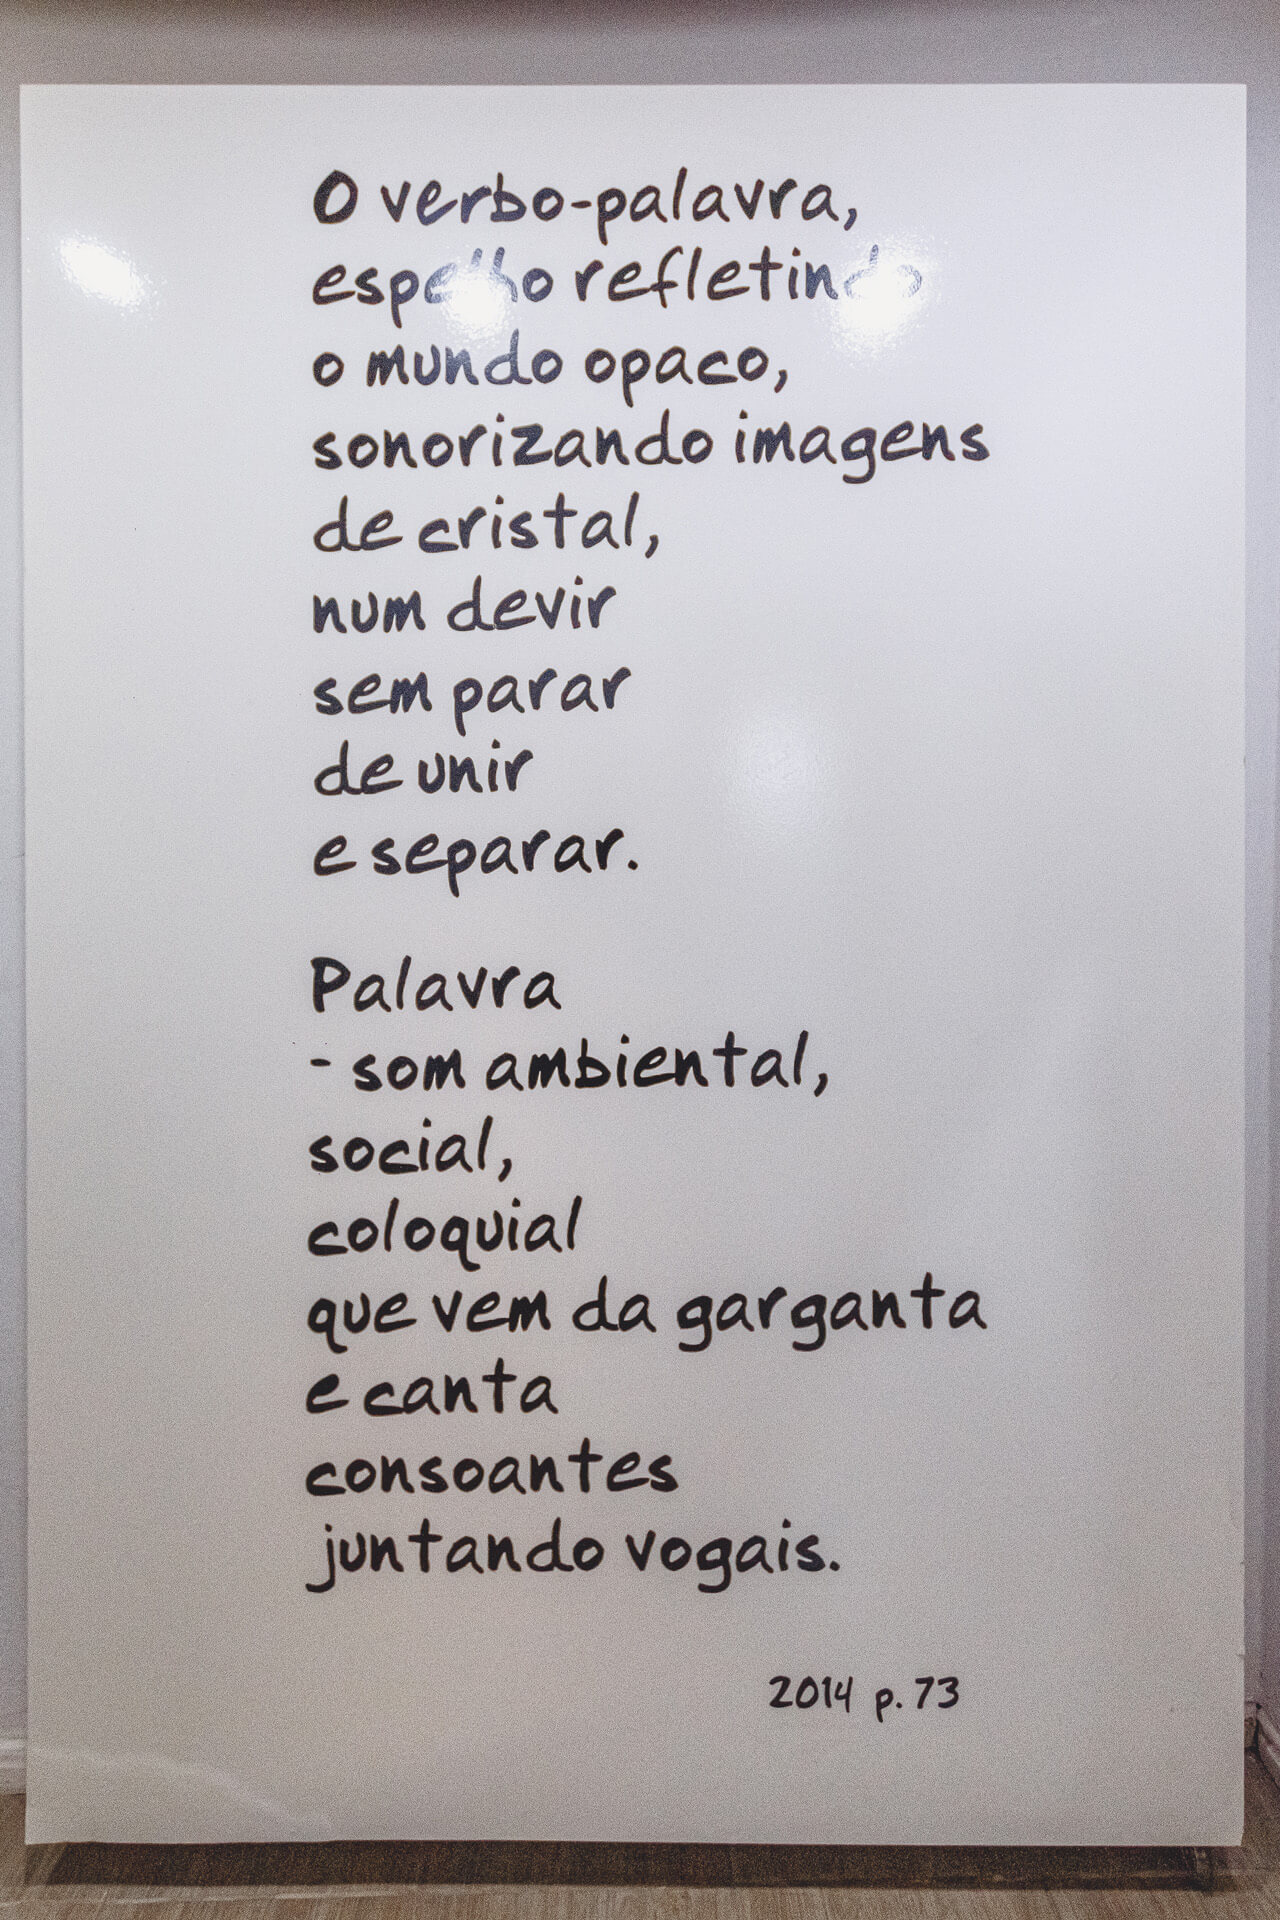 O verbo-palavra,
espelho refletindo
o mundo opaco,
sonorizando imagens
de cristal,
num devir
sem parar
de unir
e separar.
Palavra
- som ambiental,
social,
coloquial
que vem da garganta
e canta
consoantes
juntando vogais.
2014 p. 73